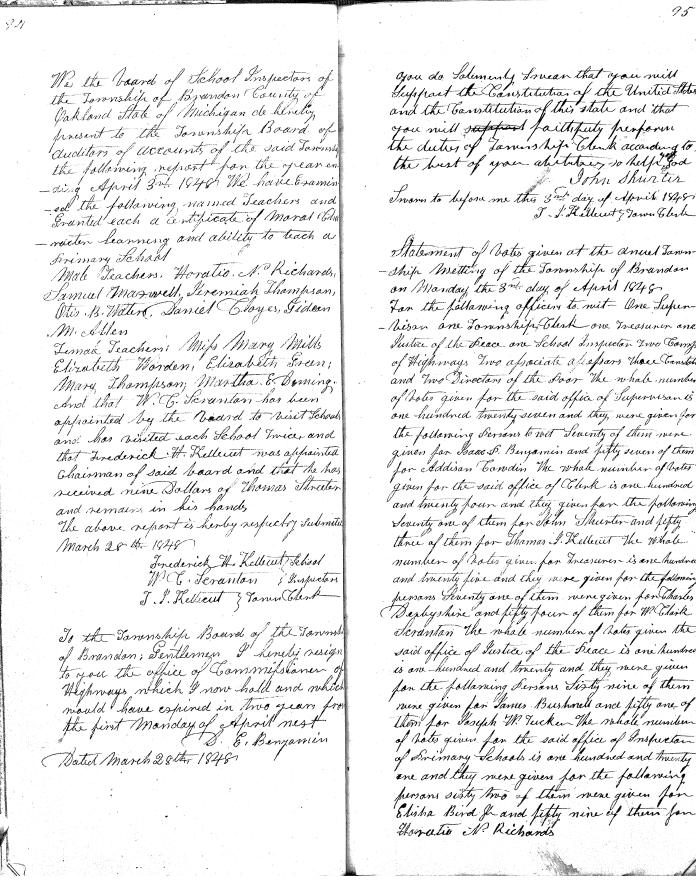 94
We the board of School Inspectors of
the Township of Brandon County of
Oakland State of Michigan do hereby
present to the Township Board of
auditors of accounts of the said Township
the following report for the year en-
-ding April 3rd 1848 We have Examin
-ed the following named Teachers and
Granted each a Certificate of Moral Cha
-racter learning and ability to teach a
Primary School
Male Teachers. Horatio N. Richards,
Samuel Maxwell, Jeremiah Thompson,
Otis B. Waters, Daniel Cloyes, Gideon
M. Allen
Female Teachers; Miss Mary Mills
Elizabeth Worden; Elizabeth Green;
Mary Thompson; Martha E. Deming.
And that W. C. Scranton has been
appointed by the board to visit Schools
and has visited each School twice and
that Frederick H. Kellicut was appointed
Chairman of said board and that he has
received nine Dollars of Thomas Streeter
and remains in his hands
The above report is herby respectfuly submitted
March 28th 1848
Frederick H. Kellicut } School
W. C. Scranton } Inspectors
T. I. Kellicut } Town Clerk
To the Township Board of the Township
of Brandon; Gentlemen I hereby resign
to you the office of Commissioner of
Highways which I now hold and which
would have expired in two years from
the first Monday of April next
E. Benjamin
Dated March 28th 1848
95
you do Solemnly Swear that you will
Support the Constitution of the United States
and the Constitution of this state and that
you will support faithfuly perform
the duties of Township Clerk according to
the best of your abilities, so help you God
John Shurter
Sworn to before me this 3rd day of April 1848
T. I. Kellicut } Town Clerk
Statement of Votes given at the anuel Town-
-ship Meeting of the Township of Brandon
on Monday the 3rd day of April 1848
For the following officers to wit One Super-
-visor one Township Clerk one Treasurer one
Justice of the Peace one School Inspector Two Comrs
of Highways Two associate assessors three Constables
and Two Directors of the Poor The whole number
of Votes given for the said office of Supervisor is
one hundred twenty seven and they were given for
the following Persons to wit Seventy of them were
given for Isaac F. Benjamin and fifty seven of them
for Addison Cowdin The whole number of Votes
given for the said office of Clerk is one hundred
and twenty four and they given for the following
Seventy one of them for John Shurter and fifty
three of them for Thomas I. Kellicut The whole
number of Votes given for Treasurer is one hundred
and twenty five and they were given for the following
persons Seventy one of them were given for Charles
Derbyshire and fifty four of them for Wm Clark
Scranton The whole number of Votes given the
said office of Justice of the Peace is one hundred
is one hundred and twenty and they were given
for the following Persons Sixty nine of them
were given for James Bushnell and fifty one of
them for Joseph W. Tucker The whole number
of Votes given for the said office of Inspector
of Primary Schools is one hundred and twenty
one and they were given for the following
persons sixty two of them were given for
Elisha Bird Jr and fifty nine of them for
Horatio N. Richards